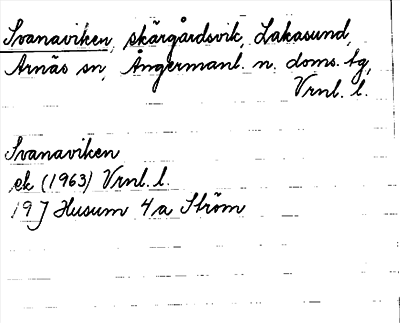 Svanaviken, skärgårdsvik, Lakasund,
Arnäs sn, Ångermanl. n. doms. tg,
Vrnl. l.
Svanaviken
ek (1963) Vrnl. l.
19J Husum 4a Ström